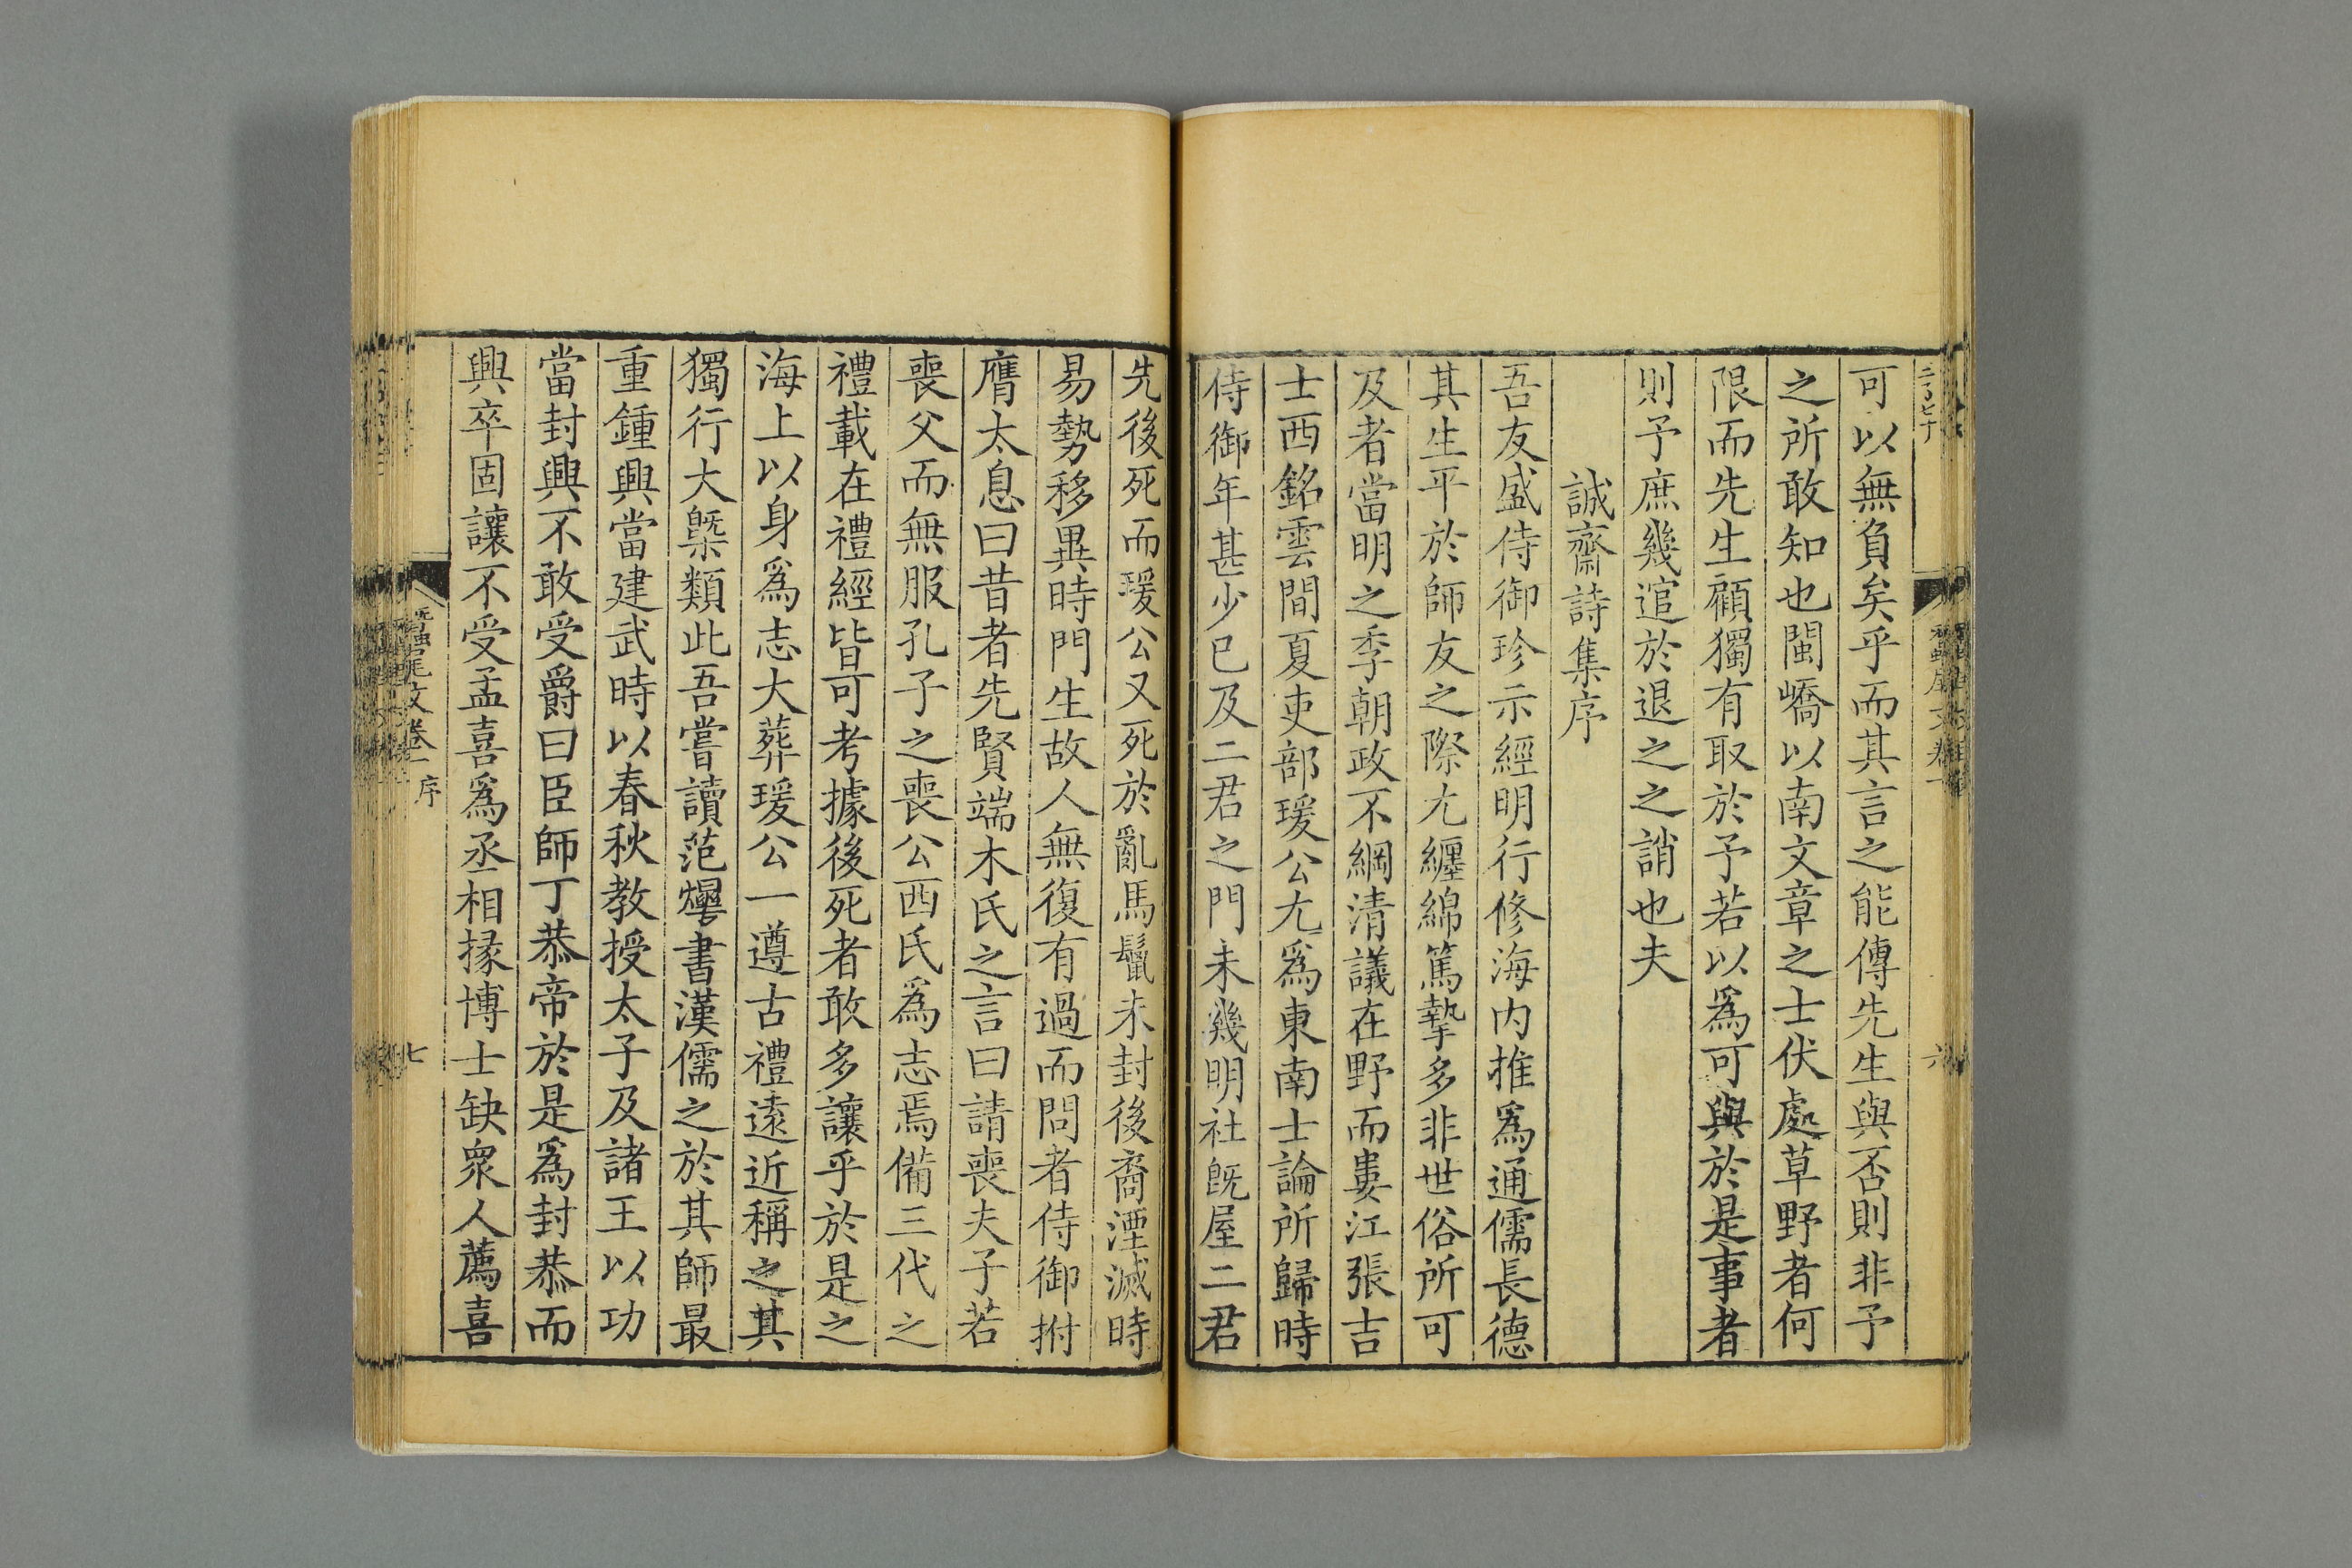 可以無負矣乎而其言之能傳先生與否則非予
之所敢知也閩嶠以南文章之士伏處草野者何
限而先生顧獨有取於予若以爲可與於是事者
則予庶幾逭於退之之誚也夫
誠齋詩集序
吾友盛侍御珍示經明行修海内推爲通儒長德
其生平於師友之際尢纏綿篤摯多非世俗所可
及者當明之季朝政不綱清議在野而婁江張吉
士西銘雲間夏吏部瑗公尢爲東南士論所歸時
侍御年甚少已及二君之門未幾明社旣屋二君
先後死而瑗公又死於亂馬鬛未封後裔湮滅時
易勢移異時門生故人無復有過而問者侍御拊
膺太息曰昔者先賢端木氏之言曰請喪夫子若
喪父而無服孔子之喪公西氏爲志焉備三代之
禮載在禮經皆可考據後死者敢多讓乎於是之
海上以身爲志大葬瑗公一遵古禮遠近稱之其
獨行大槩類此吾嘗讀范蠻書漢儒之於其師最
重鍾興當建武時以春秋教授太子及諸王以功
當封興不敢受爵曰臣師丁恭帝於是爲封恭而
興卒固讓不受孟喜爲丞相掾博士缺衆人薦喜
文卷一 序
七